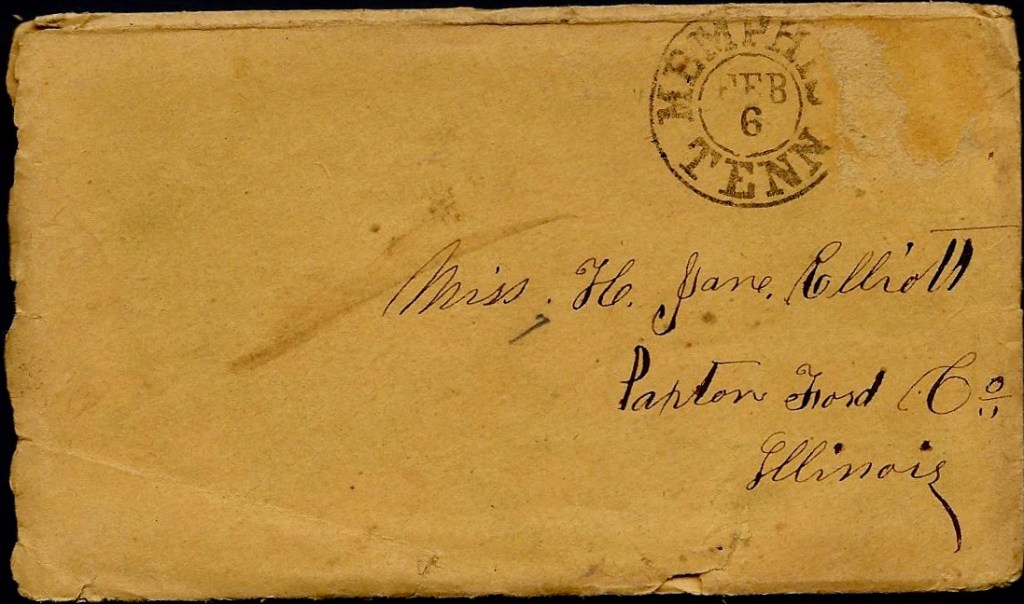 MEMPHIS
FEB
6
TENN
Miss. H. Jane. Elliott
Paxton Ford Co
Illinois